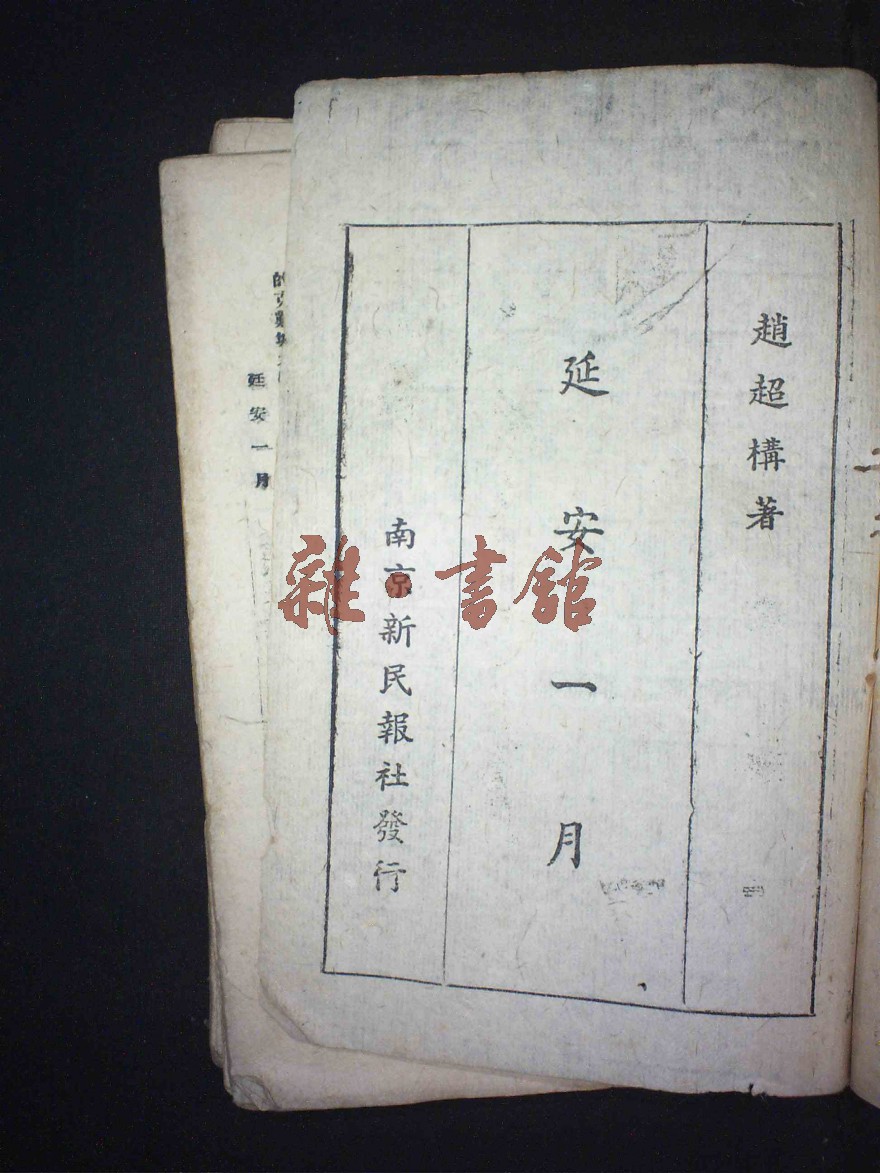 趙超構著
延安一月
南京新民報社發行
延安一月
雜·書舘